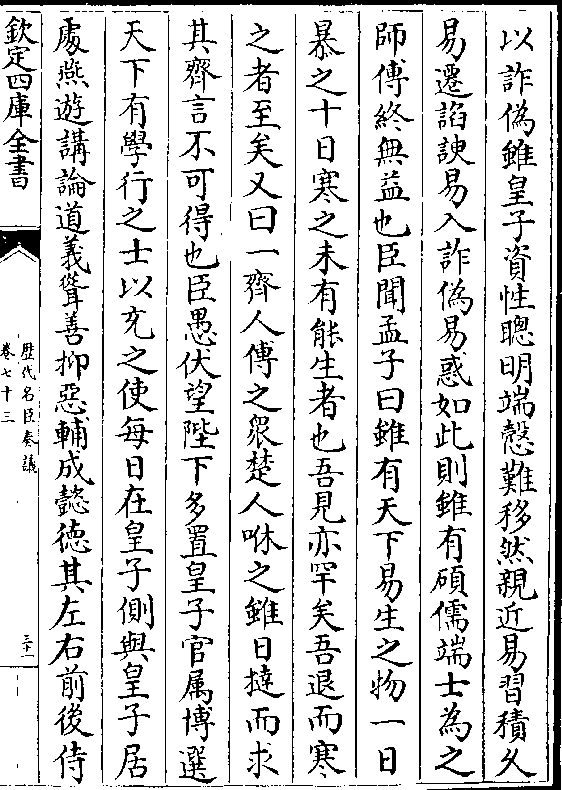 以詐偽雖皇子資性聰明端慤難移然親近易習積久
易遷諂諛易入詐偽易惑如此則雖有碩儒端士為之
師傅終無益也臣聞孟子曰雖有天下易生之物一日
暴之十日寒之未有能生者也吾見亦罕矣吾退而寒
之者至矣又曰一齊人傅之衆楚人咻之雖日撻而求
其齊言不可得也臣愚伏望陛下多置皇子官属博選
天下有學行之士以充之使每日在皇子側與皇子居
處燕遊講論道義聳善抑惡輔成懿徳其左右前後侍
欽定四庫全書
歴代名臣奏議
卷七十三
三十一